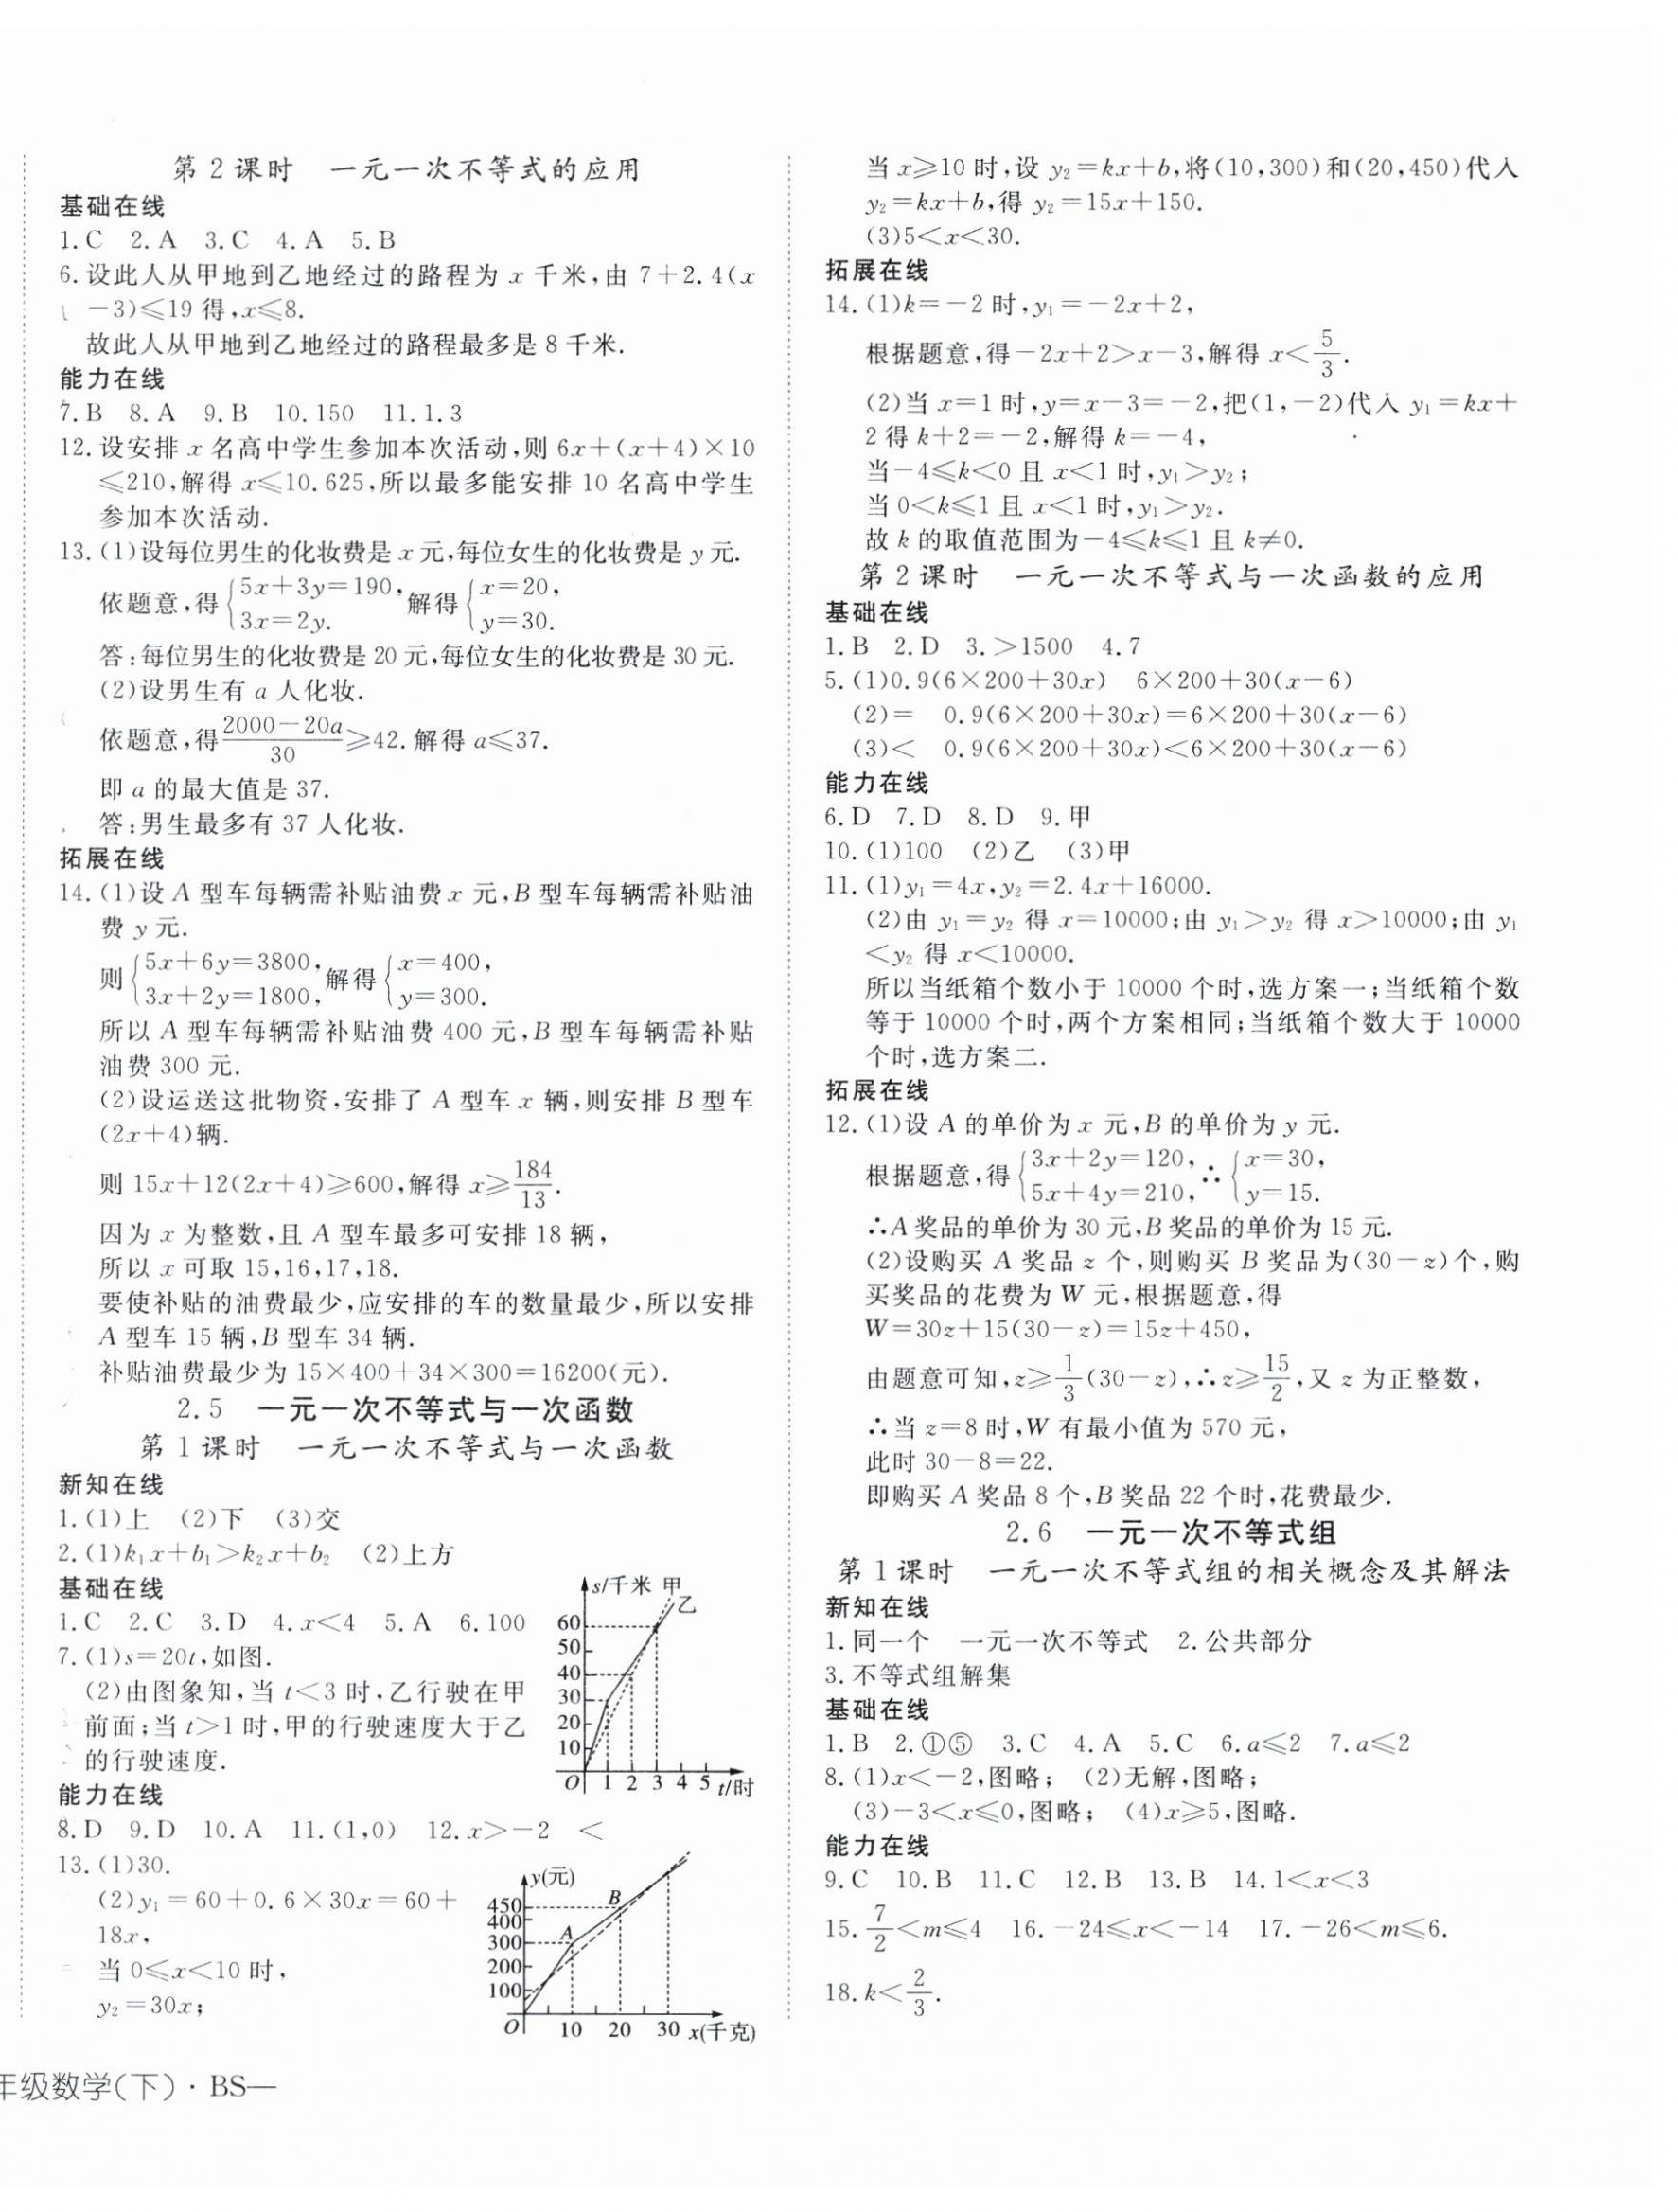 第2课时 一元一次不等式的应用
基础在线
1.C 2.A 3.C 4.A 5.B
6.设此人从甲地到乙地经过的路程为 x 千米,由 7+2.4(x
-3)≤19 得,x≤8.
故此人从甲地到乙地经过的路程最多是 8 千米.
能力在线
7.B 8.A 9.B 10.150 11.1.3
12.设安排 x 名高中学生参加本次活动,则 6x+(x+4)×10
≤210,解得 x≤10.625,所以最多能安排 10 名高中学生
参加本次活动.
13.(1)设每位男生的化妆费是 x 元,每位女生的化妆费是 y 元.
依题意,得{5x+3y=190, 3x=2y. 解得{x=20, y=30.
答:每位男生的化妆费是 20 元,每位女生的化妆费是 30 元.
(2)设男生有 a 人化妆.
依题意,得(2000-20a)/30≥42.解得 a≤37.
即 a 的最大值是 37.
答:男生最多有 37 人化妆.
拓展在线
14.(1)设 A 型车每辆需补贴油费 x 元,B 型车每辆需补贴油
费 y 元.
则{5x+6y=3800, 3x+2y=1800, 解得{x=400, y=300.
所以 A 型车每辆需补贴油费 400 元,B 型车每辆需补贴
油费 300 元.
(2)设运送这批物资,安排了 A 型车 x 辆,则安排 B 型车
(2x+4)辆.
则 15x+12(2x+4)≥600,解得 x≥184/13.
因为 x 为整数,且 A 型车最多可安排 18 辆,
所以 x 可取 15,16,17,18.
要使补贴的油费最少,应安排的车的数量最少,所以安排
A 型车 15 辆,B 型车 34 辆.
补贴油费最少为 15×400+34×300=16200(元).
2.5 一元一次不等式与一次函数
第1课时 一元一次不等式与一次函数
新知在线
1.(1)上 (2)下 (3)交
2.(1)k₁x+b₁>k₂x+b₂ (2)上方
基础在线
1.C 2.C 3.D 4.x<4 5.A 6.100
7.(1)s=20t,如图.
(2)由图象知,当 t<3 时,乙行驶在甲
前面;当 t>1 时,甲的行驶速度大于乙
的行驶速度.
s/千米 甲
乙
60
50
40
30
20
10
O 1 2 3 4 5 t/时
能力在线
8.D 9.D 10.A 11.(1,0) 12.x>-2 <
13.(1)30.
(2)y₁=60+0.6×30x=60+
18x,
当 0≤x<10 时,
y₂=30x;
y(元)
450 B
400
300 A
200
100
O 10 20 30 x(千克)
当 x≥10 时,设 y₂=kx+b,将(10,300)和(20,450)代入
y₂=kx+b,得 y₂=15x+150.
(3)5<x<30.
拓展在线
14.(1)k=-2 时,y₁=-2x+2,
根据题意,得-2x+2>x-3,解得 x<5/3.
(2)当 x=1 时,y=x-3=-2,把(1,-2)代入 y₁=kx+
2 得 k+2=-2,解得 k=-4,
当-4≤k<0 且 x<1 时,y₁>y₂;
当 0<k≤1 且 x<1 时,y₁>y₂.
故 k 的取值范围为-4≤k≤1 且 k≠0.
第2课时 一元一次不等式与一次函数的应用
基础在线
1.B 2.D 3.>1500 4.7
5.(1)0.9(6×200+30x) 6×200+30(x-6)
(2)= 0.9(6×200+30x)=6×200+30(x-6)
(3)< 0.9(6×200+30x)<6×200+30(x-6)
能力在线
6.D 7.D 8.D 9.甲
10.(1)100 (2)乙 (3)甲
11.(1)y₁=4x,y₂=2.4x+16000.
(2)由 y₁=y₂ 得 x=10000;由 y₁>y₂ 得 x>10000;由 y₁
<y₂ 得 x<10000.
所以当纸箱个数小于 10000 个时,选方案一;当纸箱个数
等于 10000 个时,两个方案相同;当纸箱个数大于 10000
个时,选方案二.
拓展在线
12.(1)设 A 的单价为 x 元,B 的单价为 y 元.
根据题意,得{3x+2y=120, 5x+4y=210, ∴{x=30, y=15.
∴A 奖品的单价为 30 元,B 奖品的单价为 15 元.
(2)设购买 A 奖品 z 个,则购买 B 奖品为(30-z)个,购
买奖品的花费为 W 元,根据题意,得
W=30z+15(30-z)=15z+450,
由题意可知,z≥1/3(30-z),∴z≥15/2,又 z 为正整数,
∴当 z=8 时,W 有最小值为 570 元,
此时 30-8=22.
即购买 A 奖品 8 个,B 奖品 22 个时,花费最少.
2.6 一元一次不等式组
第1课时 一元一次不等式组的相关概念及其解法
新知在线
1.同一个 一元一次不等式 2.公共部分
3.不等式组解集
基础在线
1.B 2.①⑤ 3.C 4.A 5.C 6.a≤2 7.a≤2
8.(1)x<-2,图略; (2)无解,图略;
(3)-3<x≤0,图略; (4)x≥5,图略.
能力在线
9.C 10.B 11.C 12.B 13.B 14.1<x<3
15.7/2<m≤4 16.-24≤x<-14 17.-26<m≤6.
18.k<2/3.
年级数学(下)·BS—